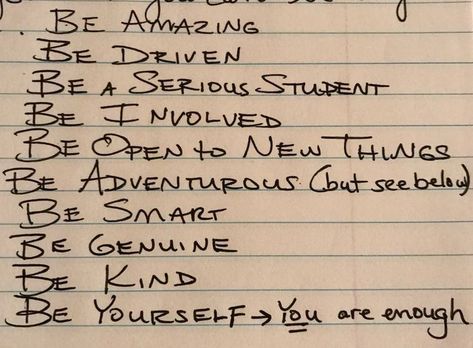 you
Be Amazing
Be Driven
Be a Serious Student
Be Involved
Be Open to New Things
Be Adventurous (but see below)
Be Smart
Be Genuine
Be Kind
Be Yourself → You are enough